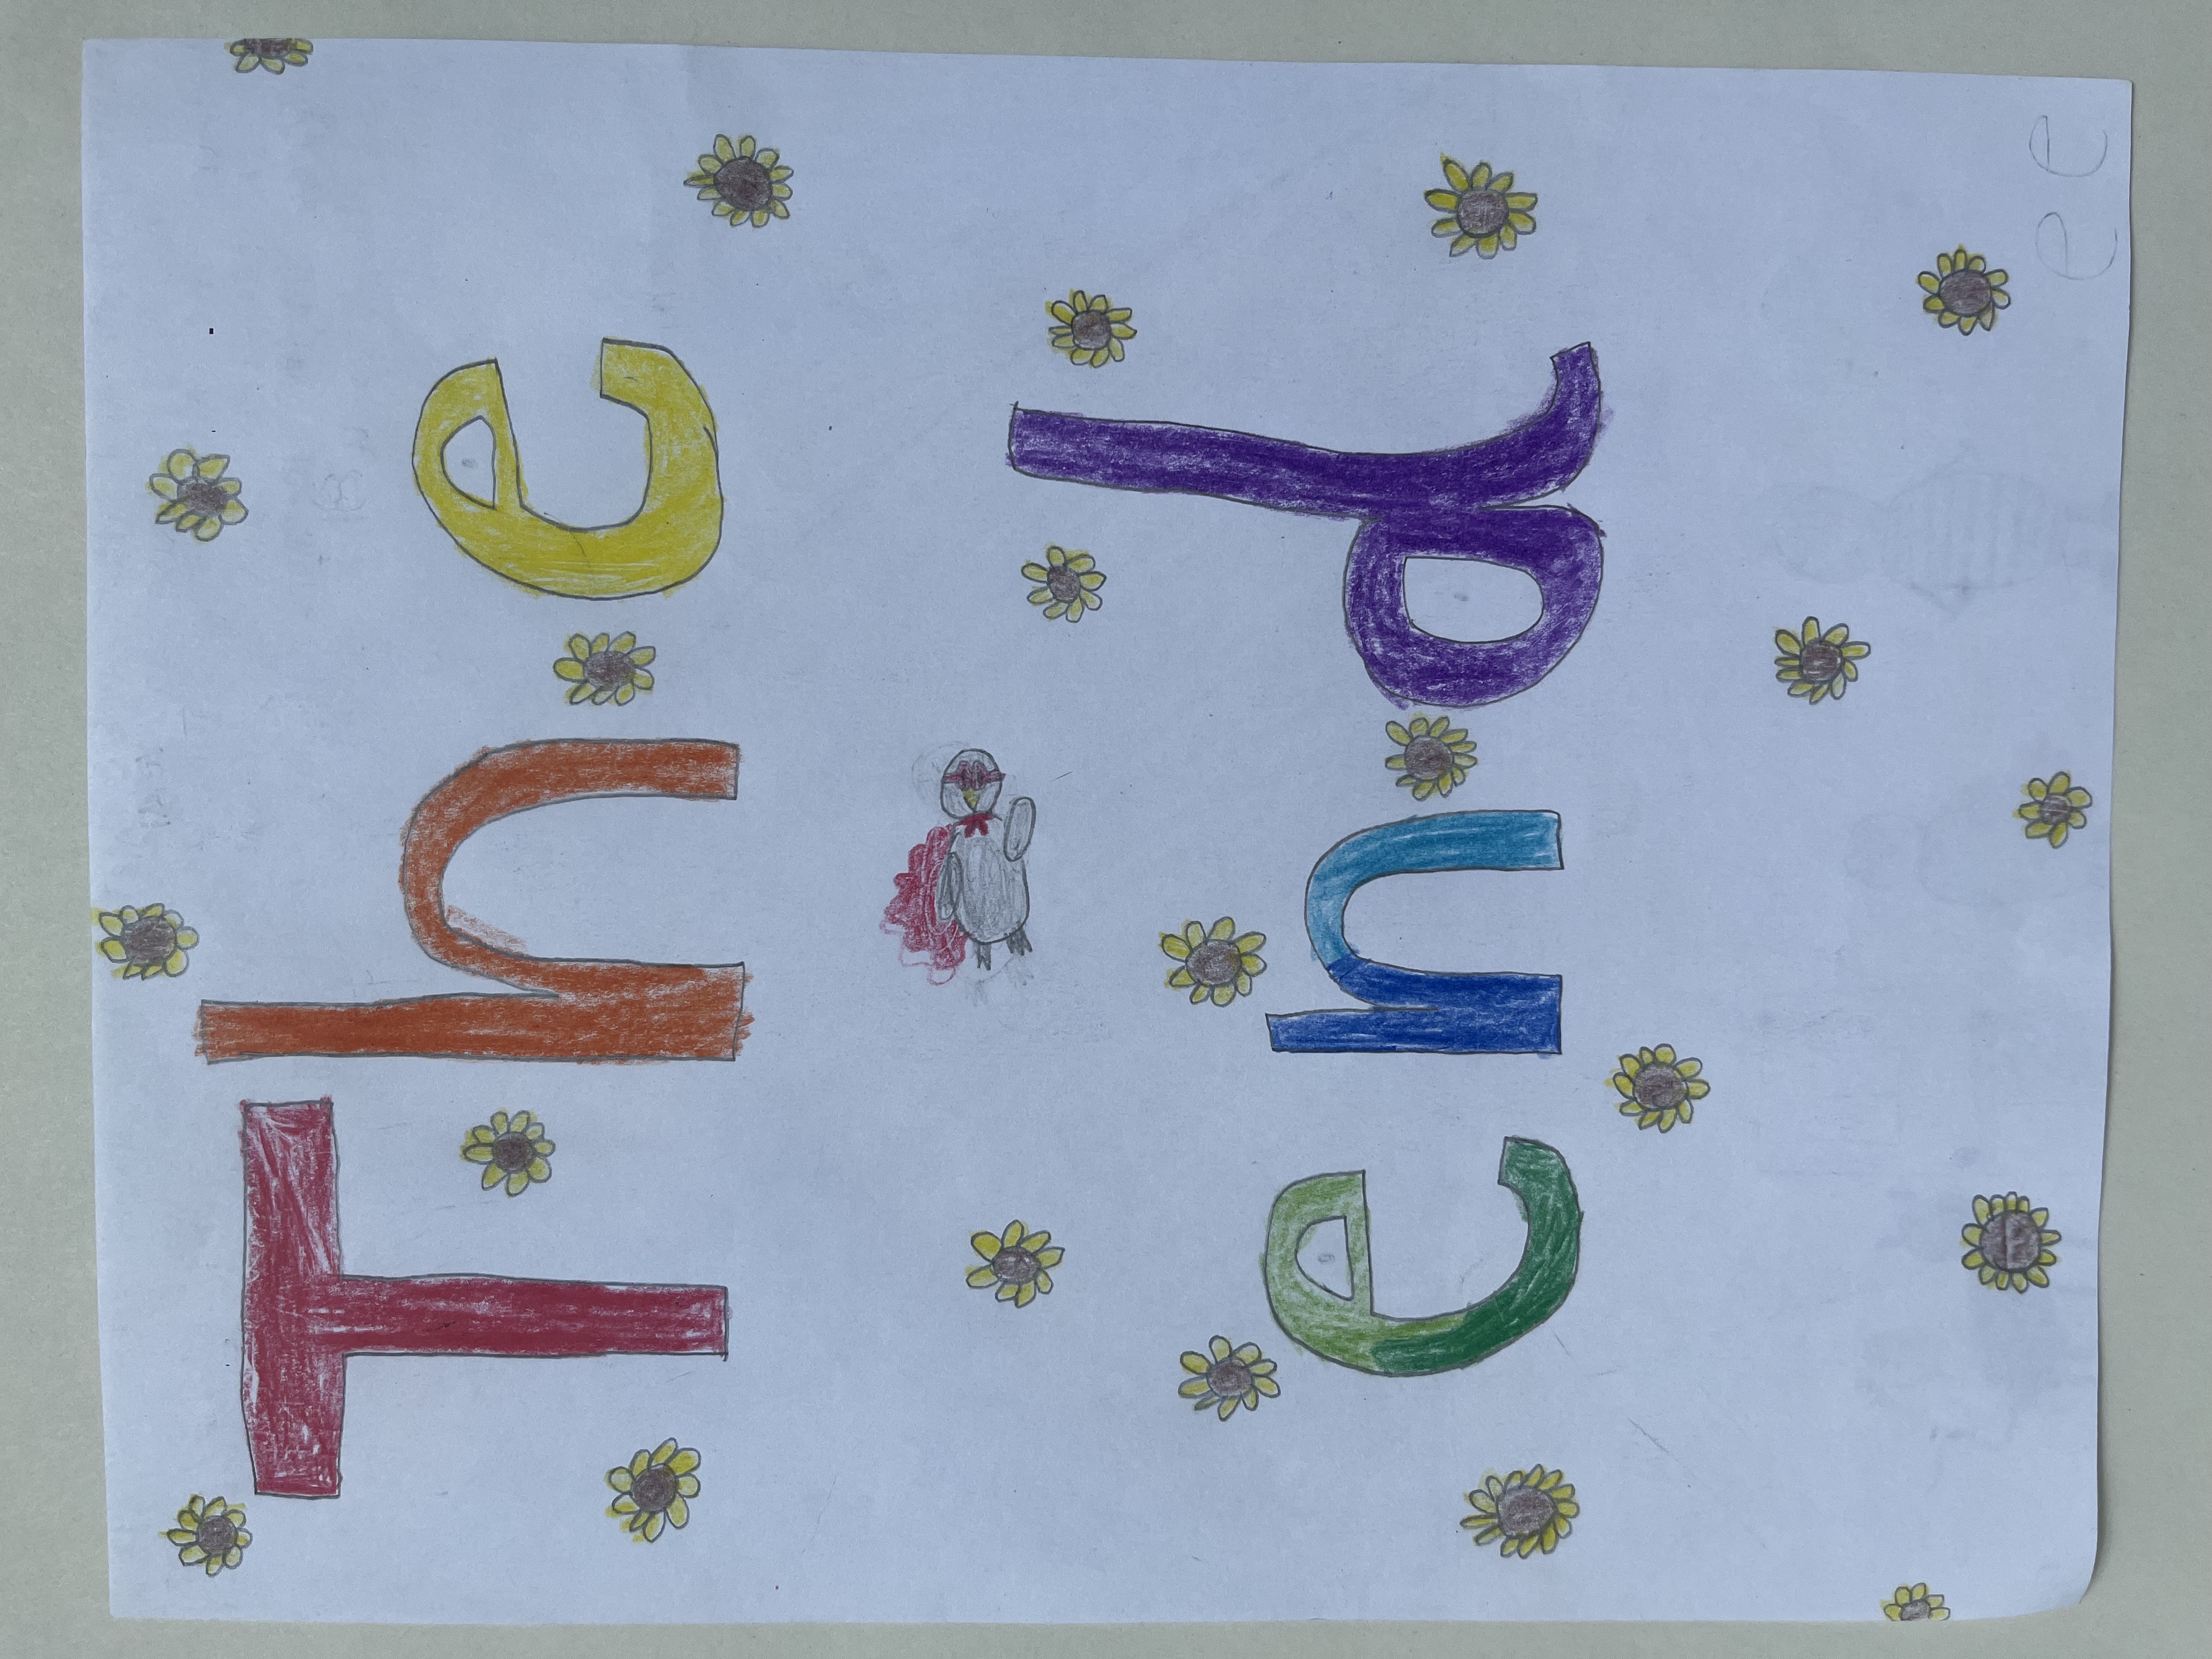 The
end
e e